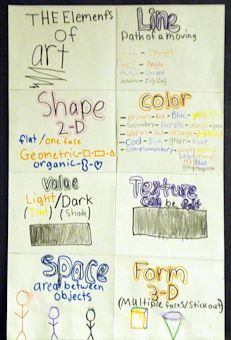 THE Elements
of
art
Line
Path of a moving
Straight
Angle
Curved
Zig-zag
Shape
2-D
flat/one face
Geometric-
organic-
color
primary-Red-Blue-yellow
Secondary-Purple-orange-green
Warm-Red-orange-yellow
Cool-Blue-green-
Complementary-
value
Light/Dark
(Tint)/(Shade)
Texture
Can be felt
Space
area between
objects
Form
3-D
(Multiple faces/Stick out)